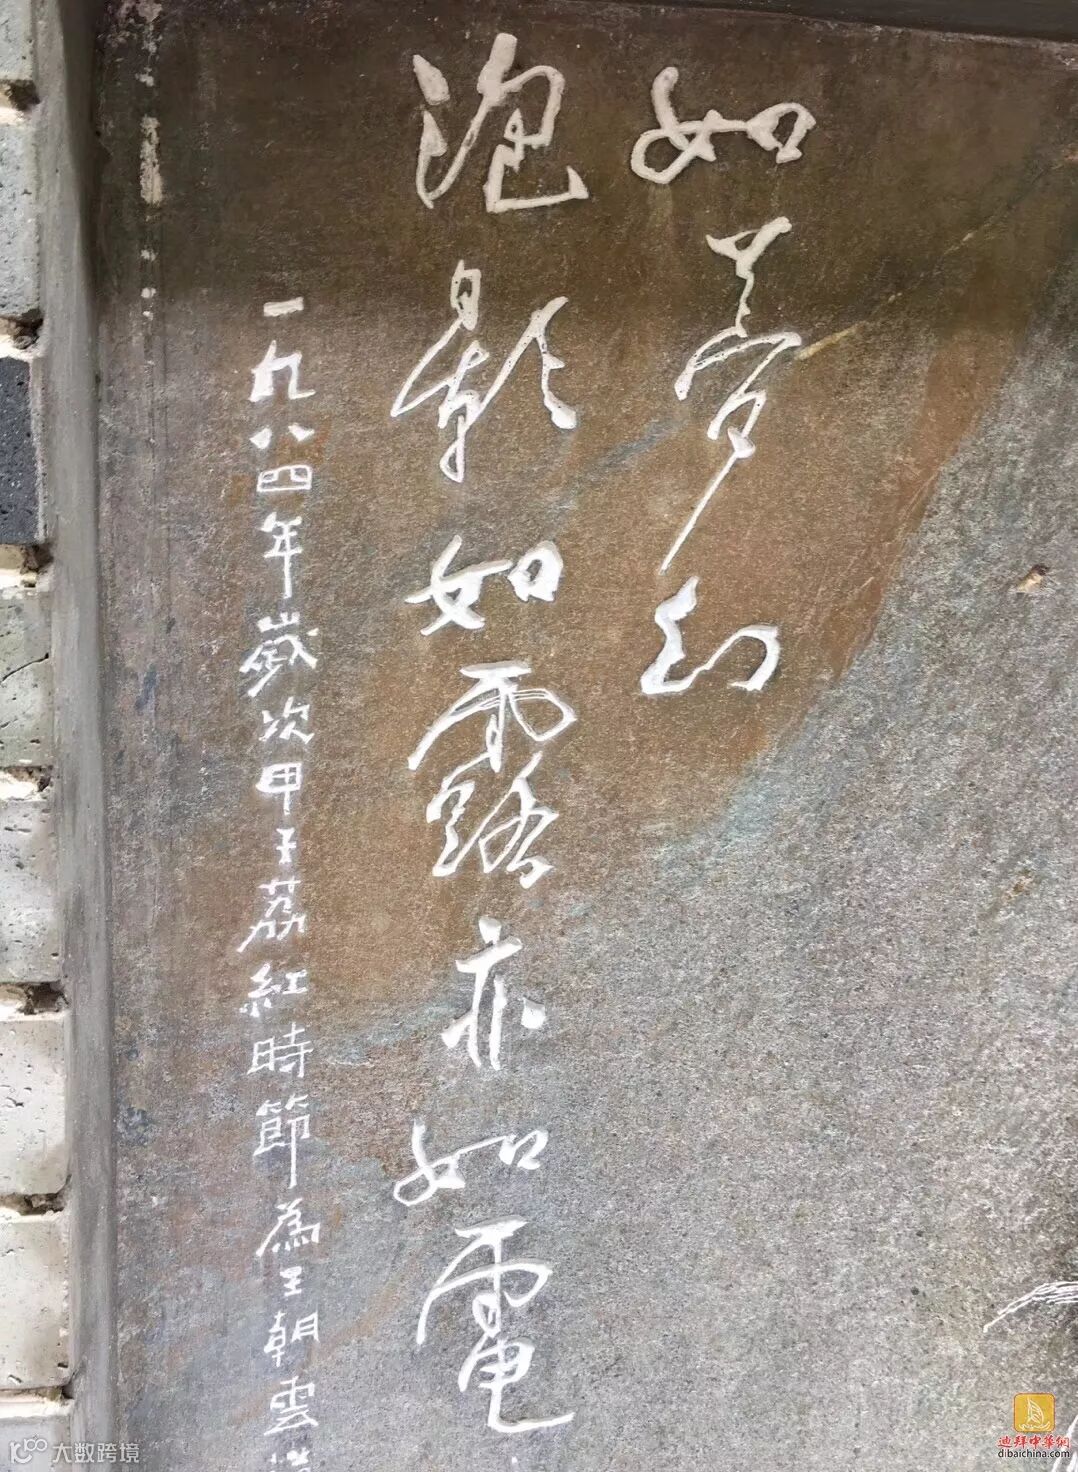 如夢幻
泡影如露亦如電
一九八四年歲次甲子荔紅時節為王朝雲
大数跨境
迪拜中華網
dibaichina.com